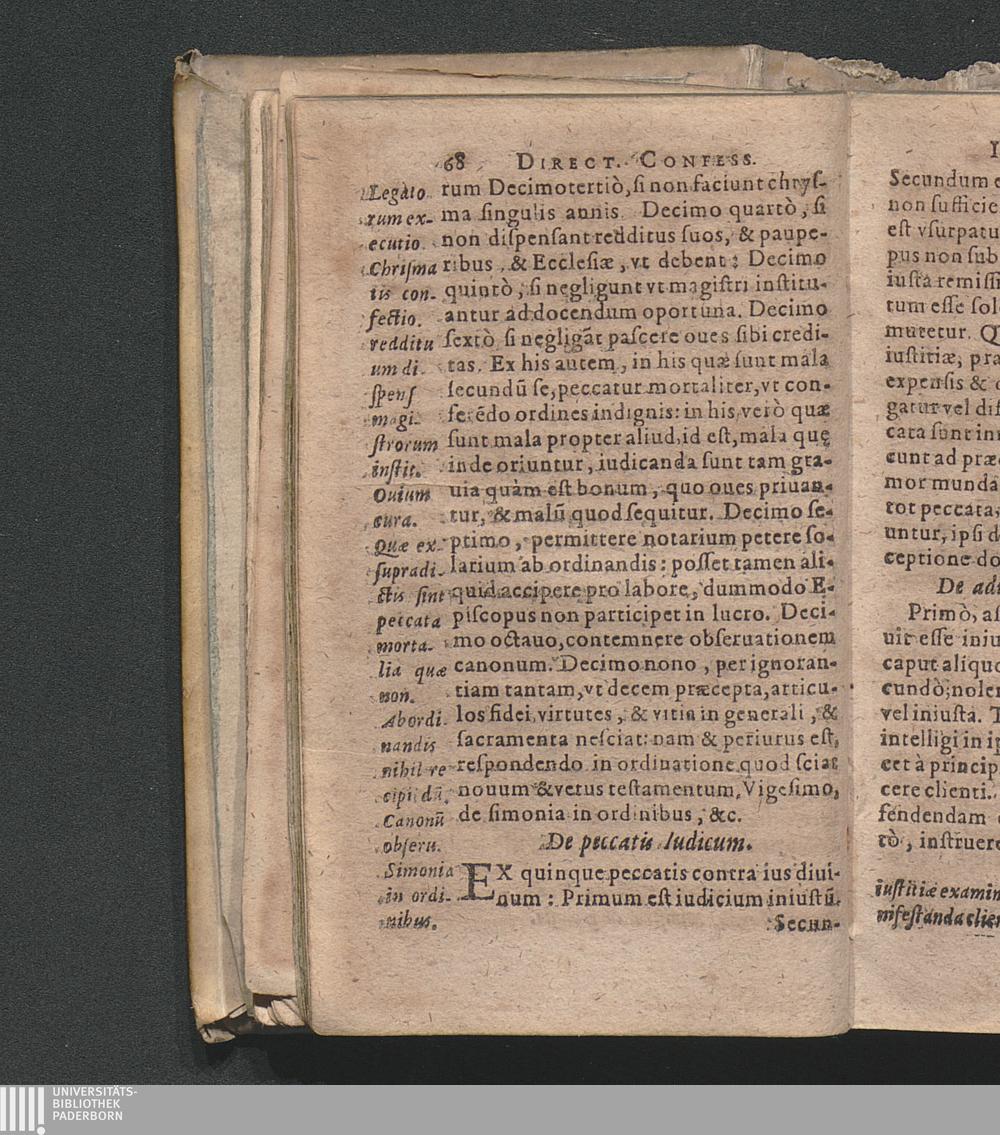 68 DIRECT. CONFESS.
rum Decimotertiò, ſi non faciunt chryſ-
ma ſingulis annis. Decimo quartò, ſi
non diſpenſant redditus ſuos, & paupe-
ribus, & Eccleſiæ, vt debent: Decimo
quintò, ſi negligunt vt magiſtri inſtitu-
antur ad docendum oportuna. Decimo
ſextò ſi negligãt paſcere oues ſibi credi-
tas. Ex his autem, in his quæ ſunt mala
ſecundũ ſe, peccatur mortaliter, vt con-
ferẽdo ordines indignis: in his verò quæ
ſunt mala propter aliud, id eſt, mala quę
inde oriuntur, iudicanda ſunt tam gra-
uia quàm eſt bonum, quo oues priuan-
tur, & malũ quod ſequitur. Decimo ſe-
ptimo, permittere notarium petere ſo-
larium ab ordinandis: poſſet tamen ali-
quid accipere pro labore, dummodo E-
piſcopus non participet in lucro. Deci-
mo octauo, contemnere obſeruationem
canonum. Decimo nono, per ignoran-
tiam tantam, vt decem præcepta, articu-
los fidei, virtutes, & vitia in generali, &
ſacramenta neſciat: nam & periurus eſt,
reſpondendo in ordinatione quod ſciat
nouum & vetus teſtamentum, Vigeſimo,
de ſimonia in ordinibus, &c.
De peccatis Iudicum.
EX quinque peccatis contra ius diui-
num: Primum eſt iudicium iniuſtũ.
Secun-
Legato
rum ex-
ecutio.
Chriſma
tis con-
fectio.
redditu
um di
ſpenſ
magi-
ſtrorum
inſtit.
Ouium
cura.
Quæ ex
ſupradi-
ctis ſint
peccata
morta-
lia quæ
non.
Ab ordi-
nandis
nihil re
cipi dũ.
Canonũ
obſeru.
Simonia
in ordi-
nibus.
I
Secundum e
non ſufficie
eſt vſurpatu
pus non ſub
iuſta remiſſi
tum eſſe ſol
mutetur. Q
iuſtitiæ, pra
expenſis &
gatur vel diſ
cata ſunt in
cunt ad præ
mor munda
tot peccata,
untur, ipſi d
ceptione do
De adu
Primò, aſ
uit eſſe iniu
caput aliquo
cundò; noler
vel iniuſta. T
intelligi in ip
cet à princip
cere clienti.
fendendam
tò, inſtruere
iuſtitiæ examin
nifeſtanda clien
UNIVERSITÄTS-
BIBLIOTHEK
PADERBORN